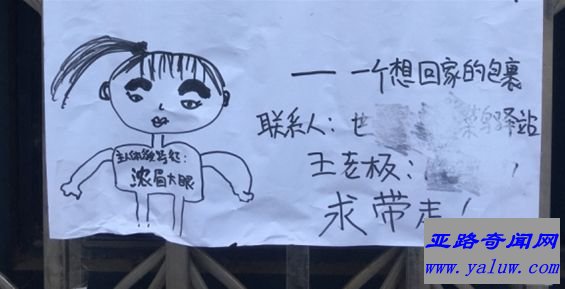 —— 一个想回家的包裹
联系人：世 菜鸟驿站
王老板：
求带走！
主人体貌特征：
浓眉大眼
亚路奇闻网
www.yaluw.com